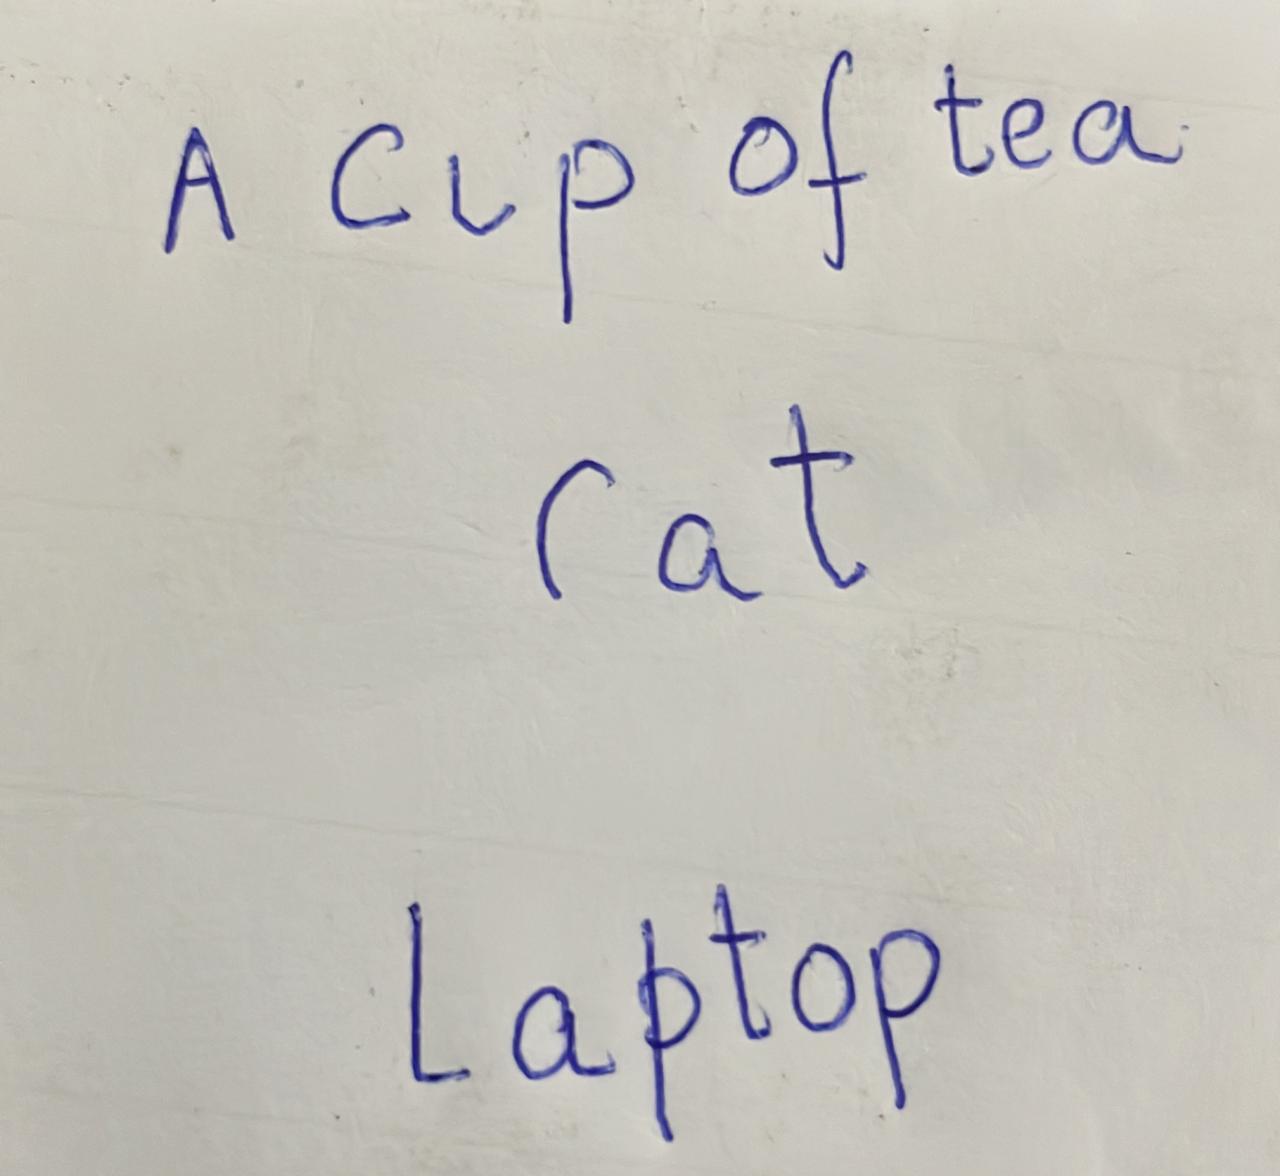 A Cup of tea
rat
Laptop